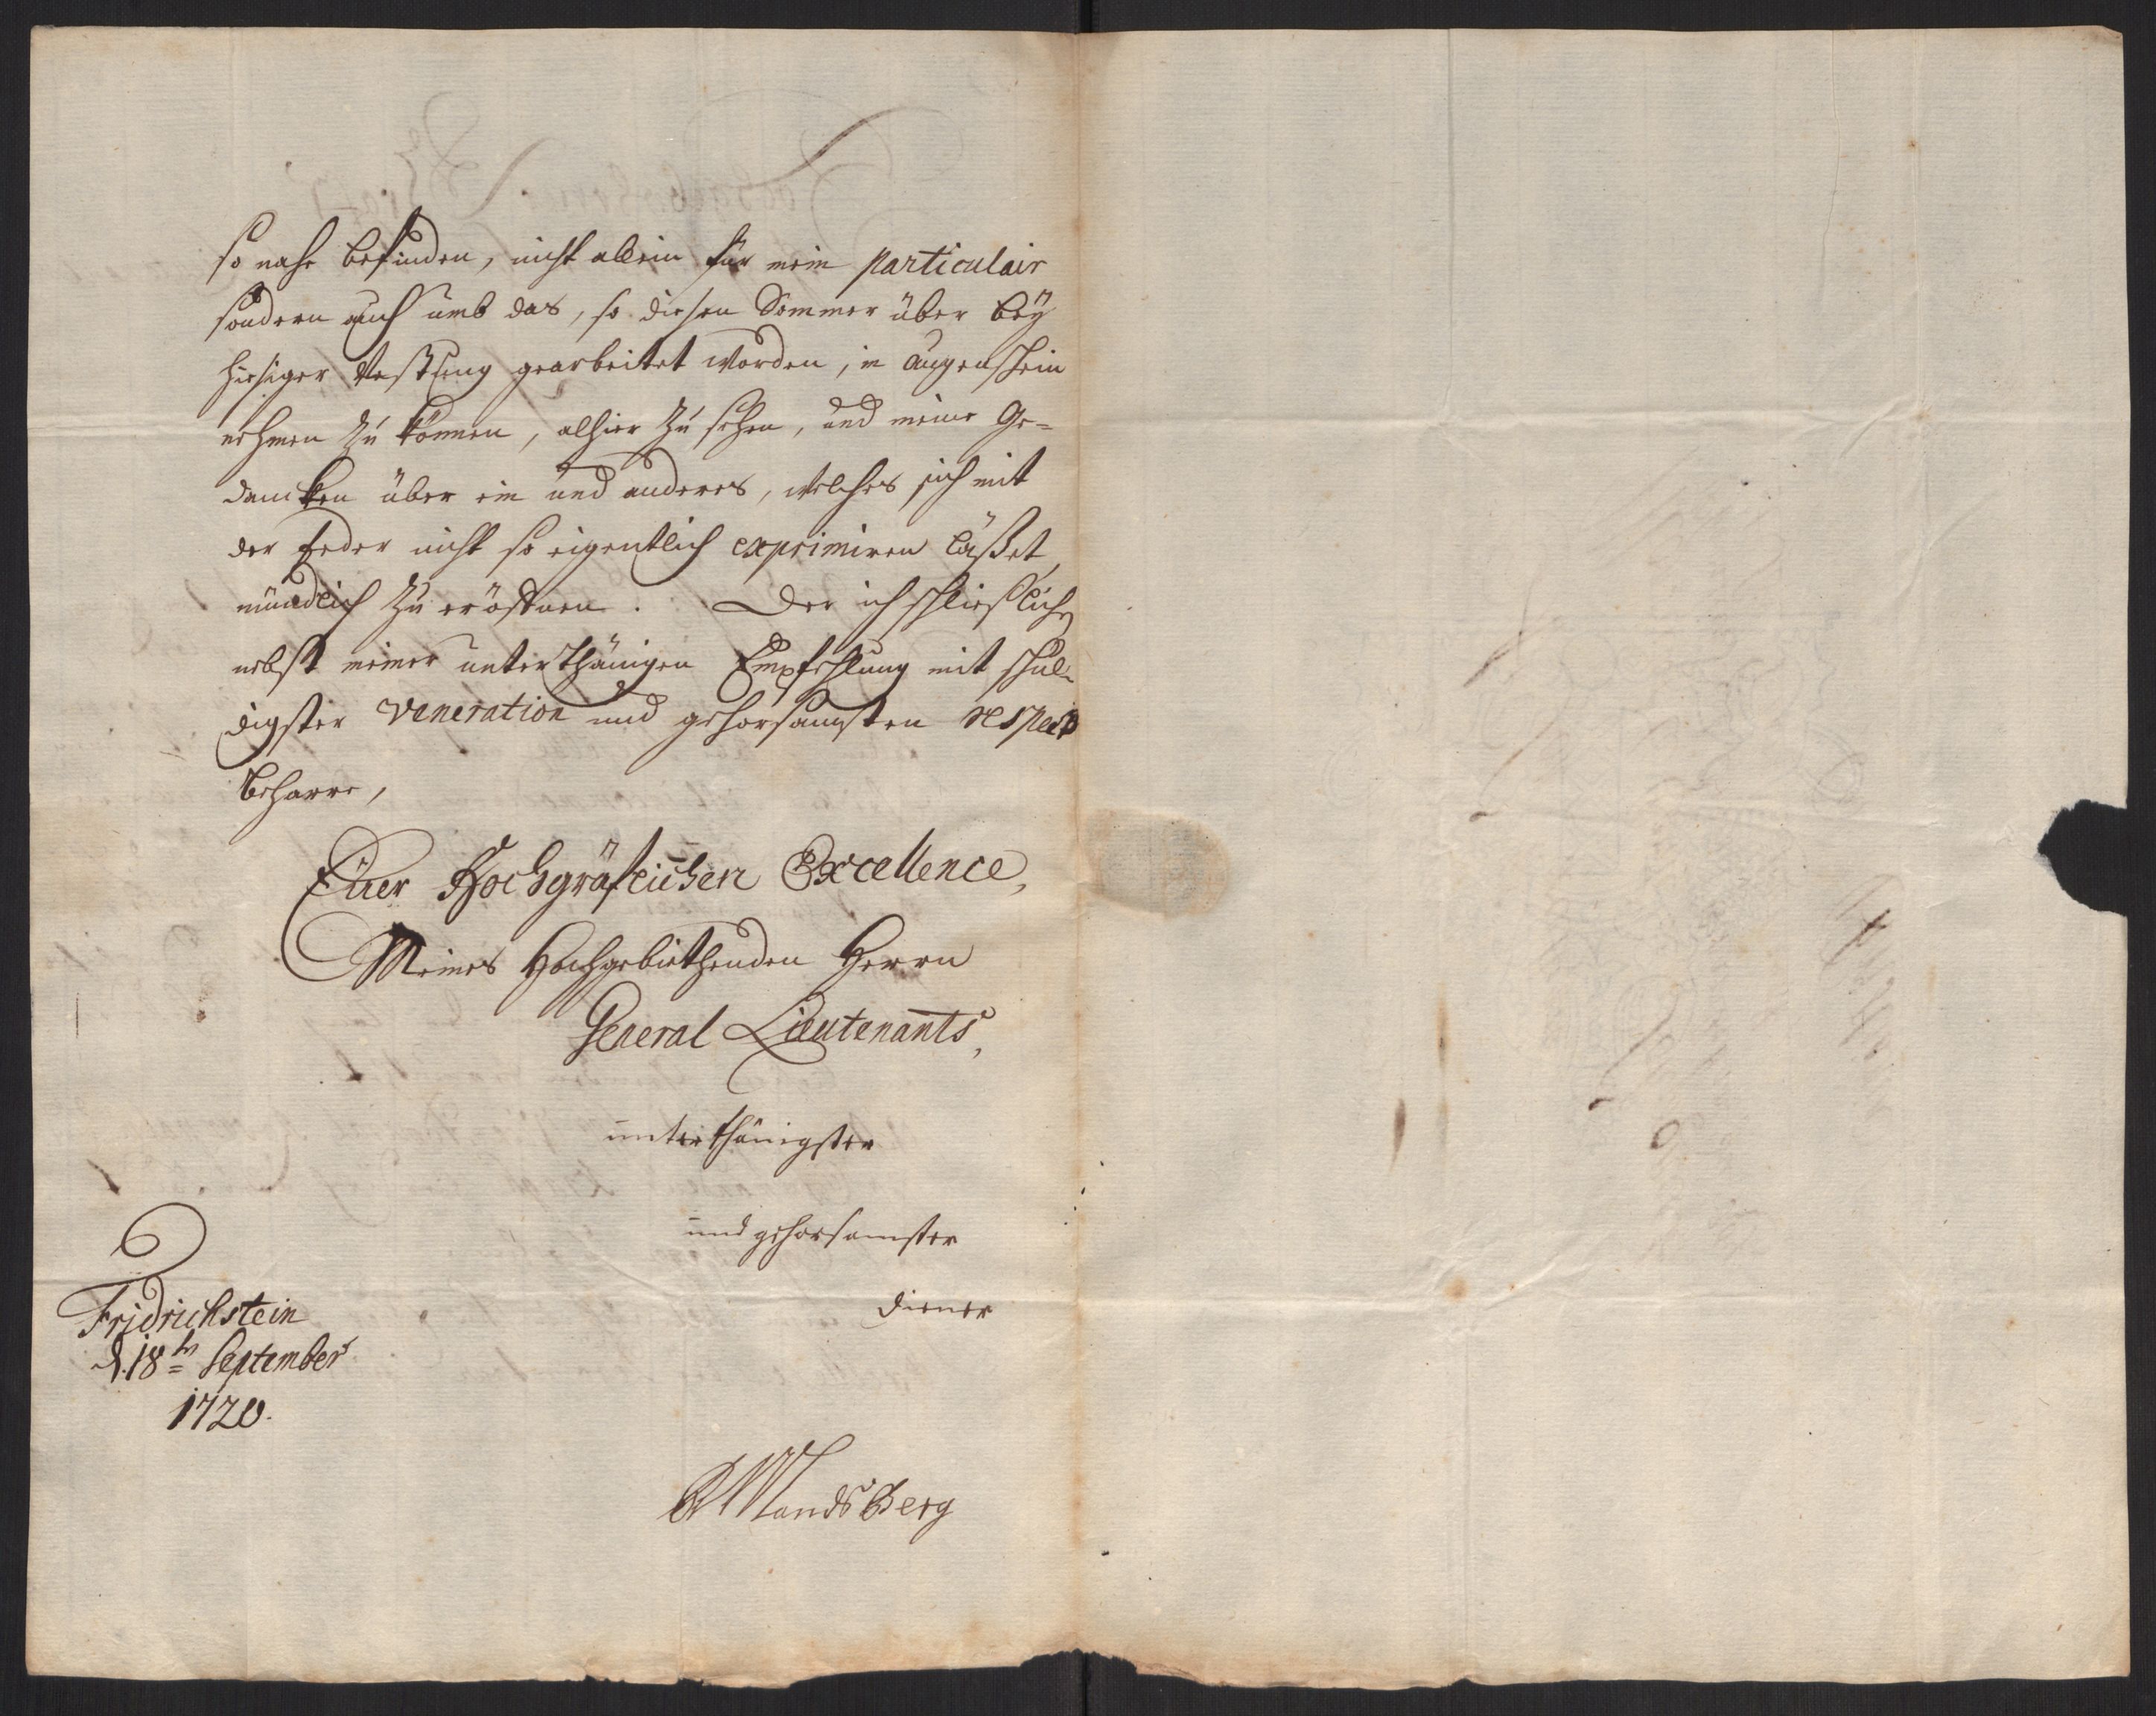 so nahe befinden, nicht allein für mein particulair
sondern auch umb das, so diesen Sommer über beÿ
hiesiger Vestung gearbeitet worden, in augenschein
nehmen zu können, alhier zu sehen, und meine Ge=
dancken über ein und anderes, welches sich mit
der Feder nicht so eigentlich exprimiren läßet,
mündlich zu eröffnen. Der ich schließlich
nebst meiner unterthänigen Empfehlung mit schul=
digster Veneration und gehorsamsten Respect
beharre,
Eüer Hochgräflichen Excellence,
Meines Hochgebiethenden Herrn
General Lieutenants,
unterthänigster
und gehorsamster
diener
Fridrichstein
d. 18tn September
1720.
Mandsberg